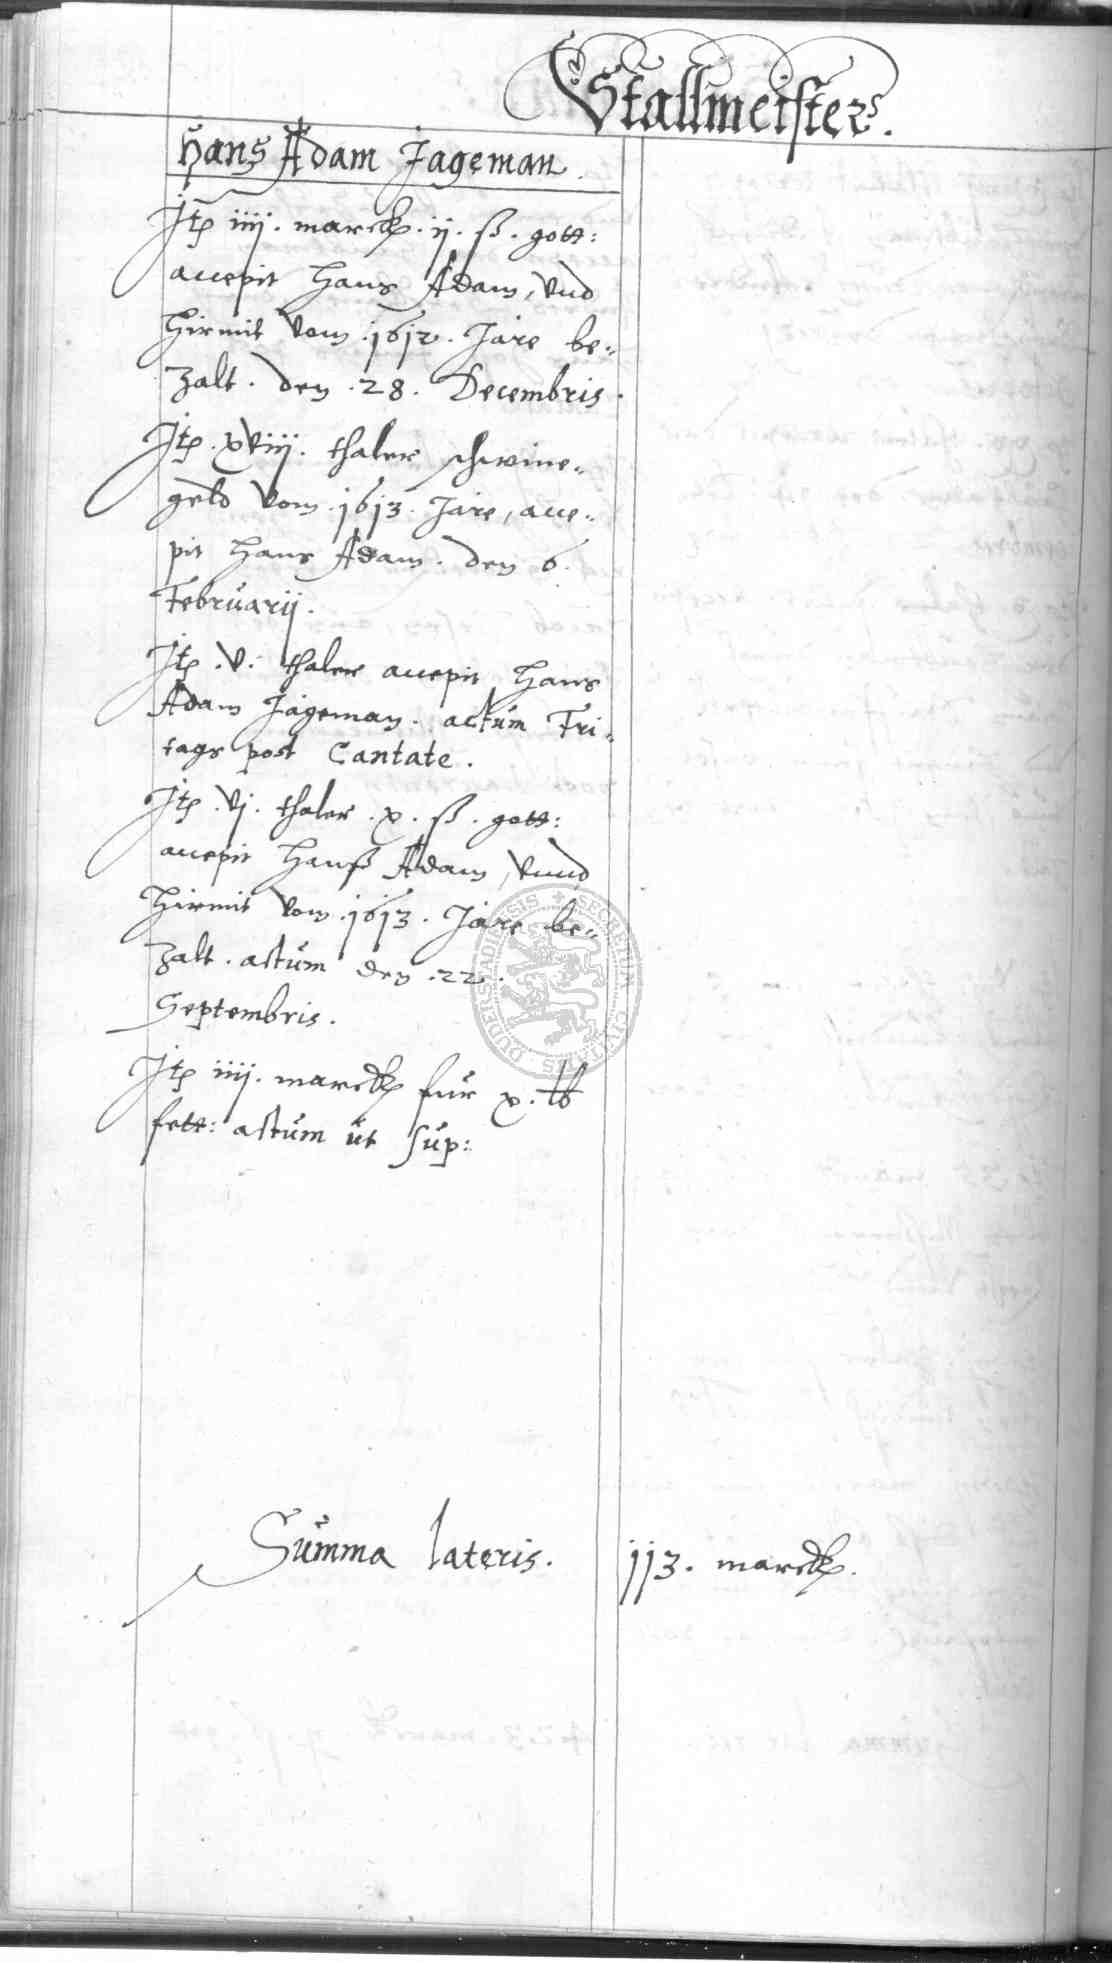 Stallmeisters.
Hans Adam Jageman.
Itē iiij. marck. ij. ß. gott:
accepit Hans Adam, vnd
hirmit vom .1612. Jare be-
zalt. den .28. Decembris.
Itē .xviij. thaler schwine-
geld vom .1613. Jare, acce-
pit Hans Adam. den 6.
Februarij.
Itē .v. thaler accepit Hans
Adam Jageman. actum Fri-
tags post Cantate.
Itē .vj. thaler .x. ß. gott:
accepit Hanß Adam, vnnd
hirmit vom .1613. Jare be-
zalt. actum den .22.
Septembris.
Itē iiij. marck fur x. lb
fett: actum ut sup:
Summa lateris. 113. marck.
SECRETUM CIVITATIS DUDERSTADIENSIS